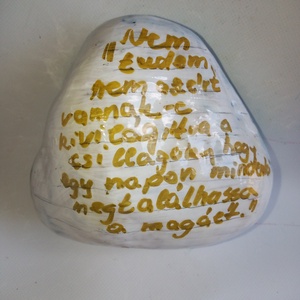 „Nem
tudom,
nem azért
vannak-e
kivilágítva a
csillagok, hogy
egy napon mindenki
megtalálhassa
a magáét."